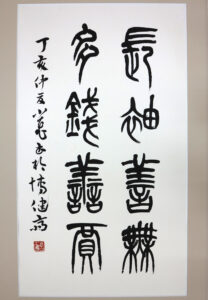 長袖善舞
多錢善賈
丁亥仲夏